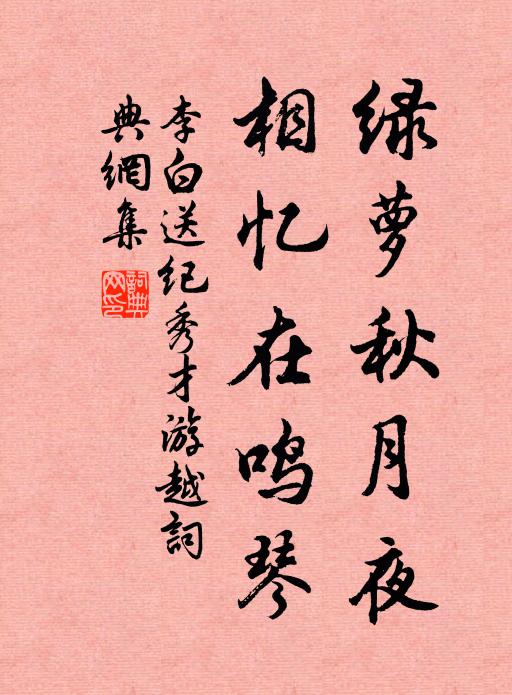 绿萝秋月夜
相忆在鸣琴
李白送纪秀才游越詞
典網集
詞典网印